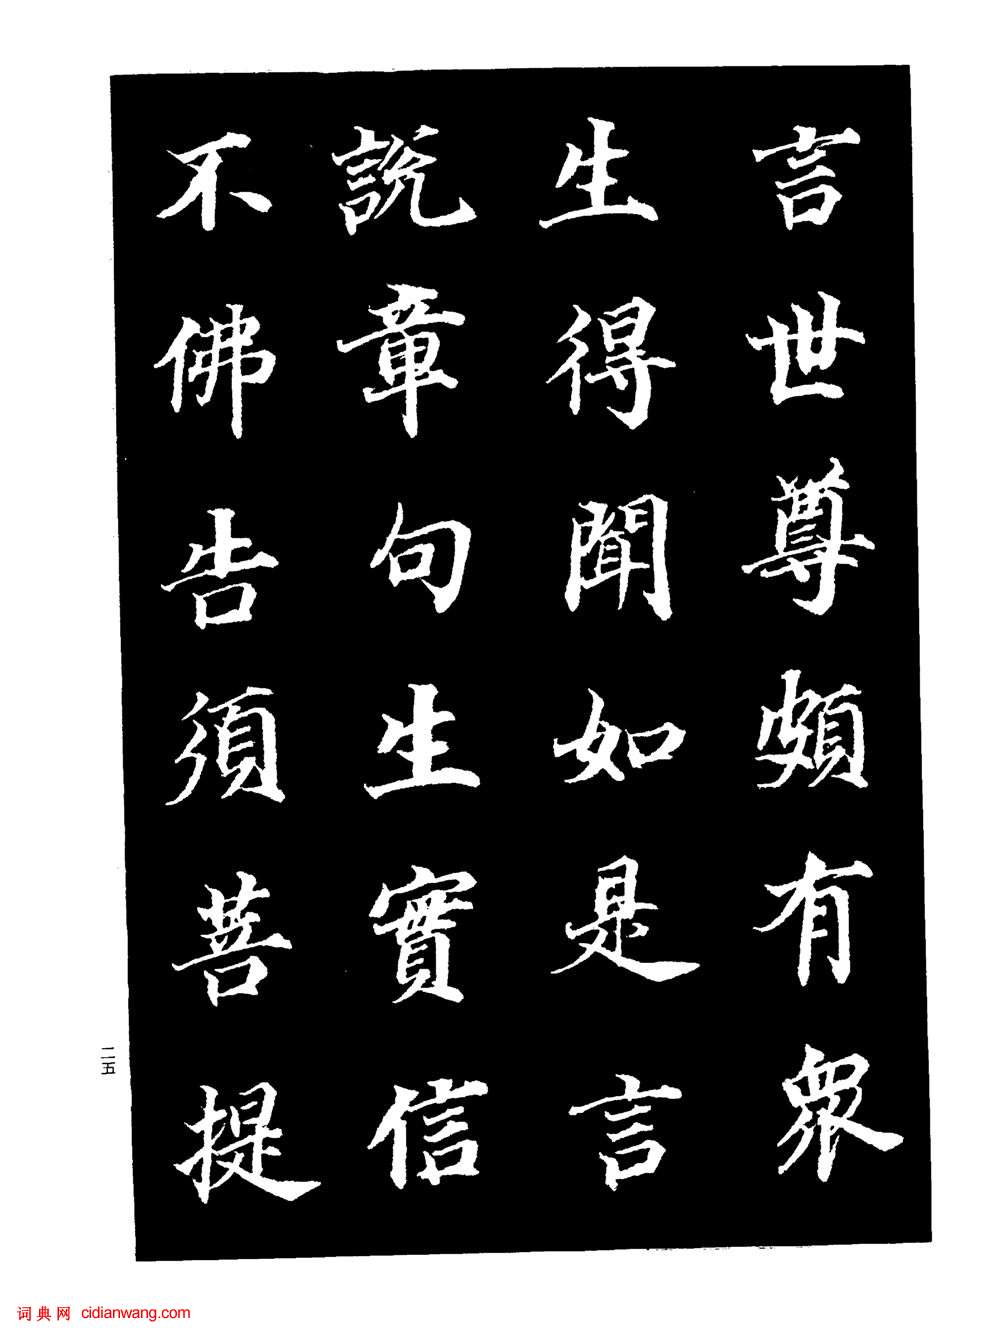 言世尊頗有衆
生得聞如是言
說章句生實信
不佛告須菩提
二五
词典网 cidianwang.com